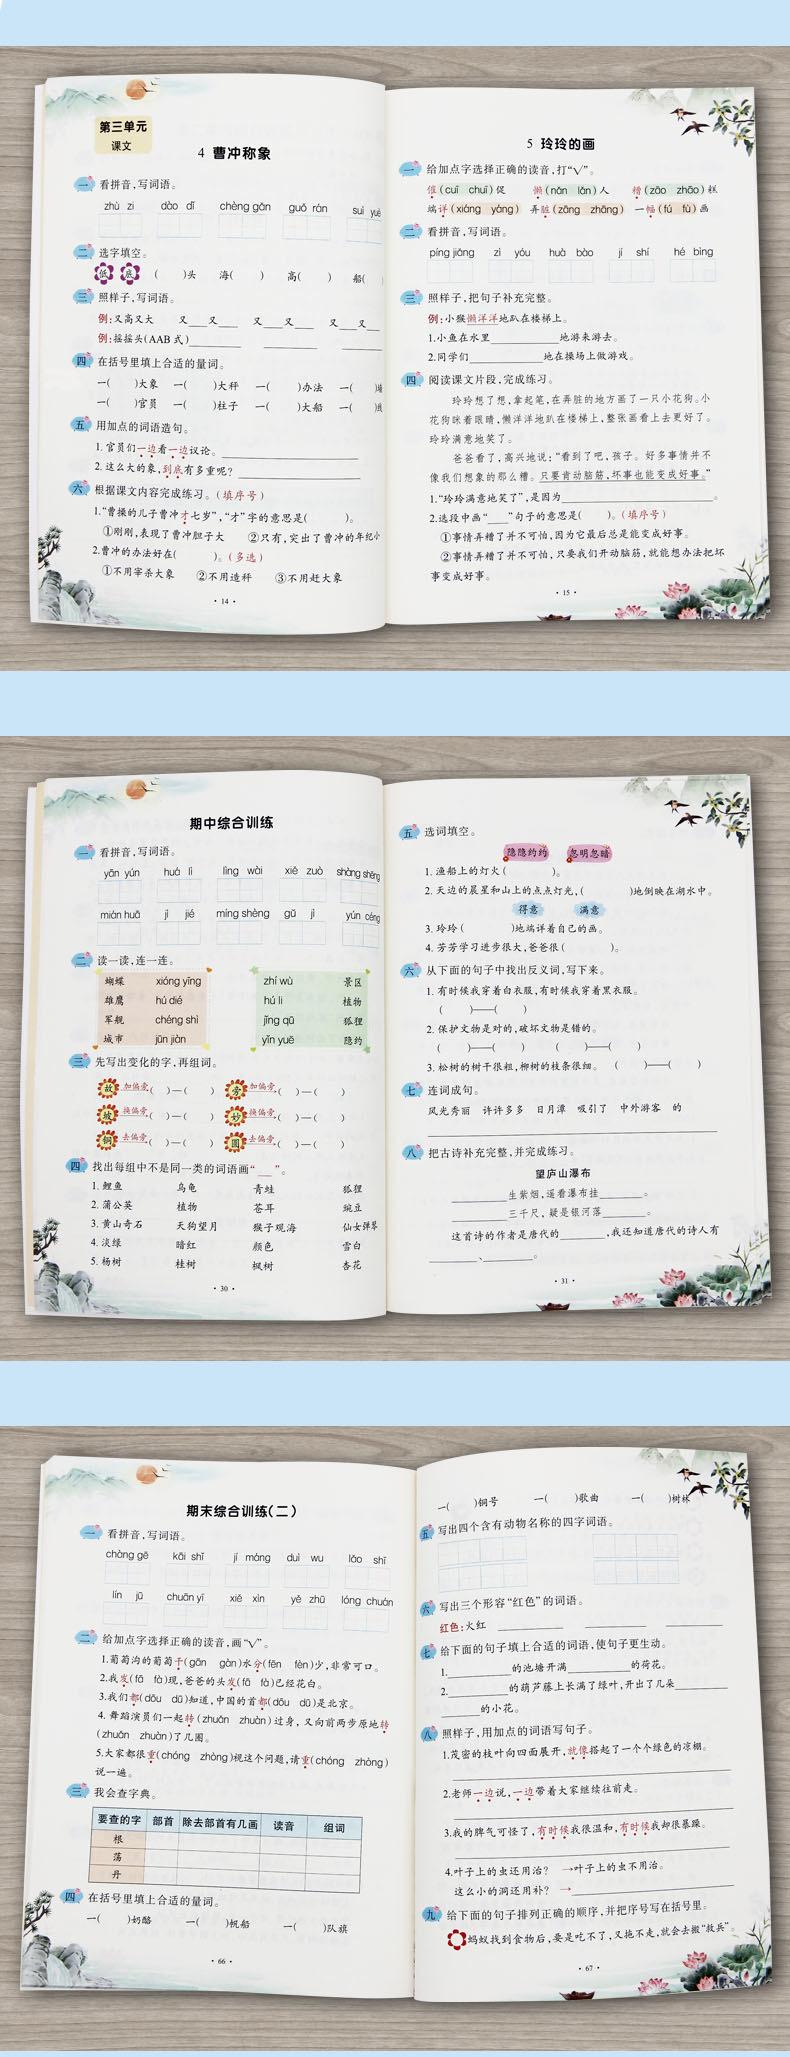 第三单元
课文
4 曹冲称象
一 看拼音,写词语。
zhù zi dào dǐ chèng gǎn guǒ rán
二 选字填空。
低 底 ( )头 海( ) 高( ) 船(
三 照样子,写词语。
例:又高又大 又___又___ 又___又___ 又___又___
例:摇摇头(AAB式) ______ ______ ______
四 在括号里填上合适的量词。
一( )大象 一( )大秤 一( )办法 一(
一( )官员 一( )柱子 一( )大船 一(
五 用加点的词语造句。
1.官员们一边看一边议论。
2.这么大的象,到底有多重呢?
六 根据课文内容完成练习。(填序号)
1.“曹操的儿子曹冲才七岁”,“才”字的意思是( )。
①刚刚,表现了曹冲胆子大 ②只有,突出了曹冲的年纪小
2.曹冲的办法好在( )。(多选)
①不用宰杀大象 ②不用造秤 ③不用赶大象
·14·
5 玲玲的画
一 给加点字选择正确的读音,打“√”。
催(cuī chuī)促 懒(nǎn lǎn)人 糟(zāo zhāo)糕
端详(xiáng yáng) 弄脏(zāng zhāng) 一幅(fú fù)画
二 看拼音,写词语。
píng jiǎng zì yóu huà bào jí shí hé bìng
三 照样子,把句子补充完整。
例:小猴懒洋洋地趴在楼梯上。
1.小鱼在水里__________地游来游去。
2.同学们__________地在操场上做游戏。
四 阅读课文片段,完成练习。
玲玲想了想,拿起笔,在弄脏的地方画了一只小花狗。小
花狗眯着眼睛,懒洋洋地趴在楼梯上,整张画看上去更好了。
玲玲满意地笑了。
爸爸看了,高兴地说:“看到了吧,孩子。好多事情并不
像我们想象的那么糟。只要肯动脑筋,坏事也能变成好事。”
1.“玲玲满意地笑了”,是因为____________________。
2.选段中画“___”句子的意思是( )。(填序号)
①事情弄糟了并不可怕,因为它最后总是能变成好事。
②事情弄糟了并不可怕,只要我们开动脑筋,就能想办法把坏
事变成好事。
·15·
期中综合训练
一 看拼音,写词语。
yān yún huá lì lìng wài xiě zuò shàng shēng
mián huā jì jié míng shèng gǔ jì yún céng
二 读一读,连一连。
蝴蝶 xióng yīng zhí wù 景区
雄鹰 hú dié hú li 植物
军舰 chéng shì jǐng qū 狐狸
城市 jūn jiàn yǐn yuē 隐约
三 先写出变化的字,再组词。
故 加偏旁( )—( ) 旁 加偏旁( )—( )
坡 换偏旁( )—( ) 妙 换偏旁( )—( )
铜 去偏旁( )—( ) 圆 去偏旁( )—( )
四 找出每组中不是同一类的词语画“___”。
1.鲤鱼 乌龟 青蛙 狐狸
2.蒲公英 植物 苍耳 豌豆
3.黄山奇石 天狗望月 猴子观海 仙女弹琴
4.淡绿 暗红 颜色 雪白
5.杨树 桂树 枫树 杏花
·30·
五 选词填空。
隐隐约约 忽明忽暗
1.渔船上的灯火( )。
2.天边的晨星和山上的点点灯光,( )地倒映在湖水中。
得意 满意
3.玲玲( )地端详着自己的画。
4.芳芳学习进步很大,爸爸很( )。
六 从下面的句子中找出反义词,写下来。
1.有时候我穿着白衣服,有时候我穿着黑衣服。
( )—( )
2.保护文物是对的,破坏文物是错的。
( )—( ) ( )—( )
3.松树的树干很粗,柳树的枝条很细。 ( )—( )
七 连词成句。
风光秀丽 许许多多 日月潭 吸引了 中外游客 的
八 把古诗补充完整,并完成练习。
望庐山瀑布
________生紫烟,遥看瀑布挂________。
________三千尺,疑是银河落________。
这首诗的作者是唐代的________,我还知道唐代的诗人有
________、________。
·31·
期末综合训练(二)
一 看拼音,写词语。
chàng gē kāi shǐ jí máng duì wu lǎo shī
lín jū chuān yī xiě xìn yě zhū lóng chuán
二 给加点字选择正确的读音,画“√”。
1.葡萄沟的葡萄干(gān gàn)水分(fēn fèn)少,非常可口。
2.我发(fā fà)现,爸爸的头发(fā fà)已经花白。
3.我们都(dōu dū)知道,中国的首都(dōu dū)是北京。
4.舞蹈演员们一起转(zhuǎn zhuàn)过身,又向前两步原地转
(zhuǎn zhuàn)了几圈。
5.大家都很重(chóng zhòng)视这个问题,请重(chóng zhòng)
说一遍。
三 我会查字典。
要查的字 部首 除去部首有几画 读音 组词
根
荡
丹
四 在括号里填上合适的量词。
一( )奶酪 一( )帆船 一( )队旗
·66·
一( )铜号 一( )歌曲 一( )树林
五 写出四个含有动物名称的四字词语。
六 写出三个形容“红色”的词语。
红色:火红 ________ ________ ________
七 给下面的句子填上合适的词语,使句子更生动。
1.________的池塘开满________的荷花。
2.________的葫芦藤上长满了绿叶,开出了几朵________
________的小花。
八 照样子,用加点的词语写句子。
1.茂密的枝叶向四面展开,就像搭起了一个个绿色的凉棚。
2.老师一边说,一边带着大家继续往前走。
3.我的脾气可怪了,有时候我很温和,有时候我却很暴躁。
4.叶子上的虫还用治? →叶子上的虫不用治。
这么小的洞还用补? →
九 给下面的句子排列正确的顺序,并把序号写在括号里。
蚂蚁找到食物后,要是吃不了,又拖不走,就会去搬“救兵”。
·67·